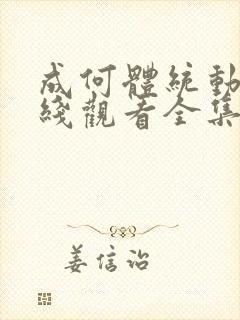 成何體統動
綫觀看全集
姜信詒